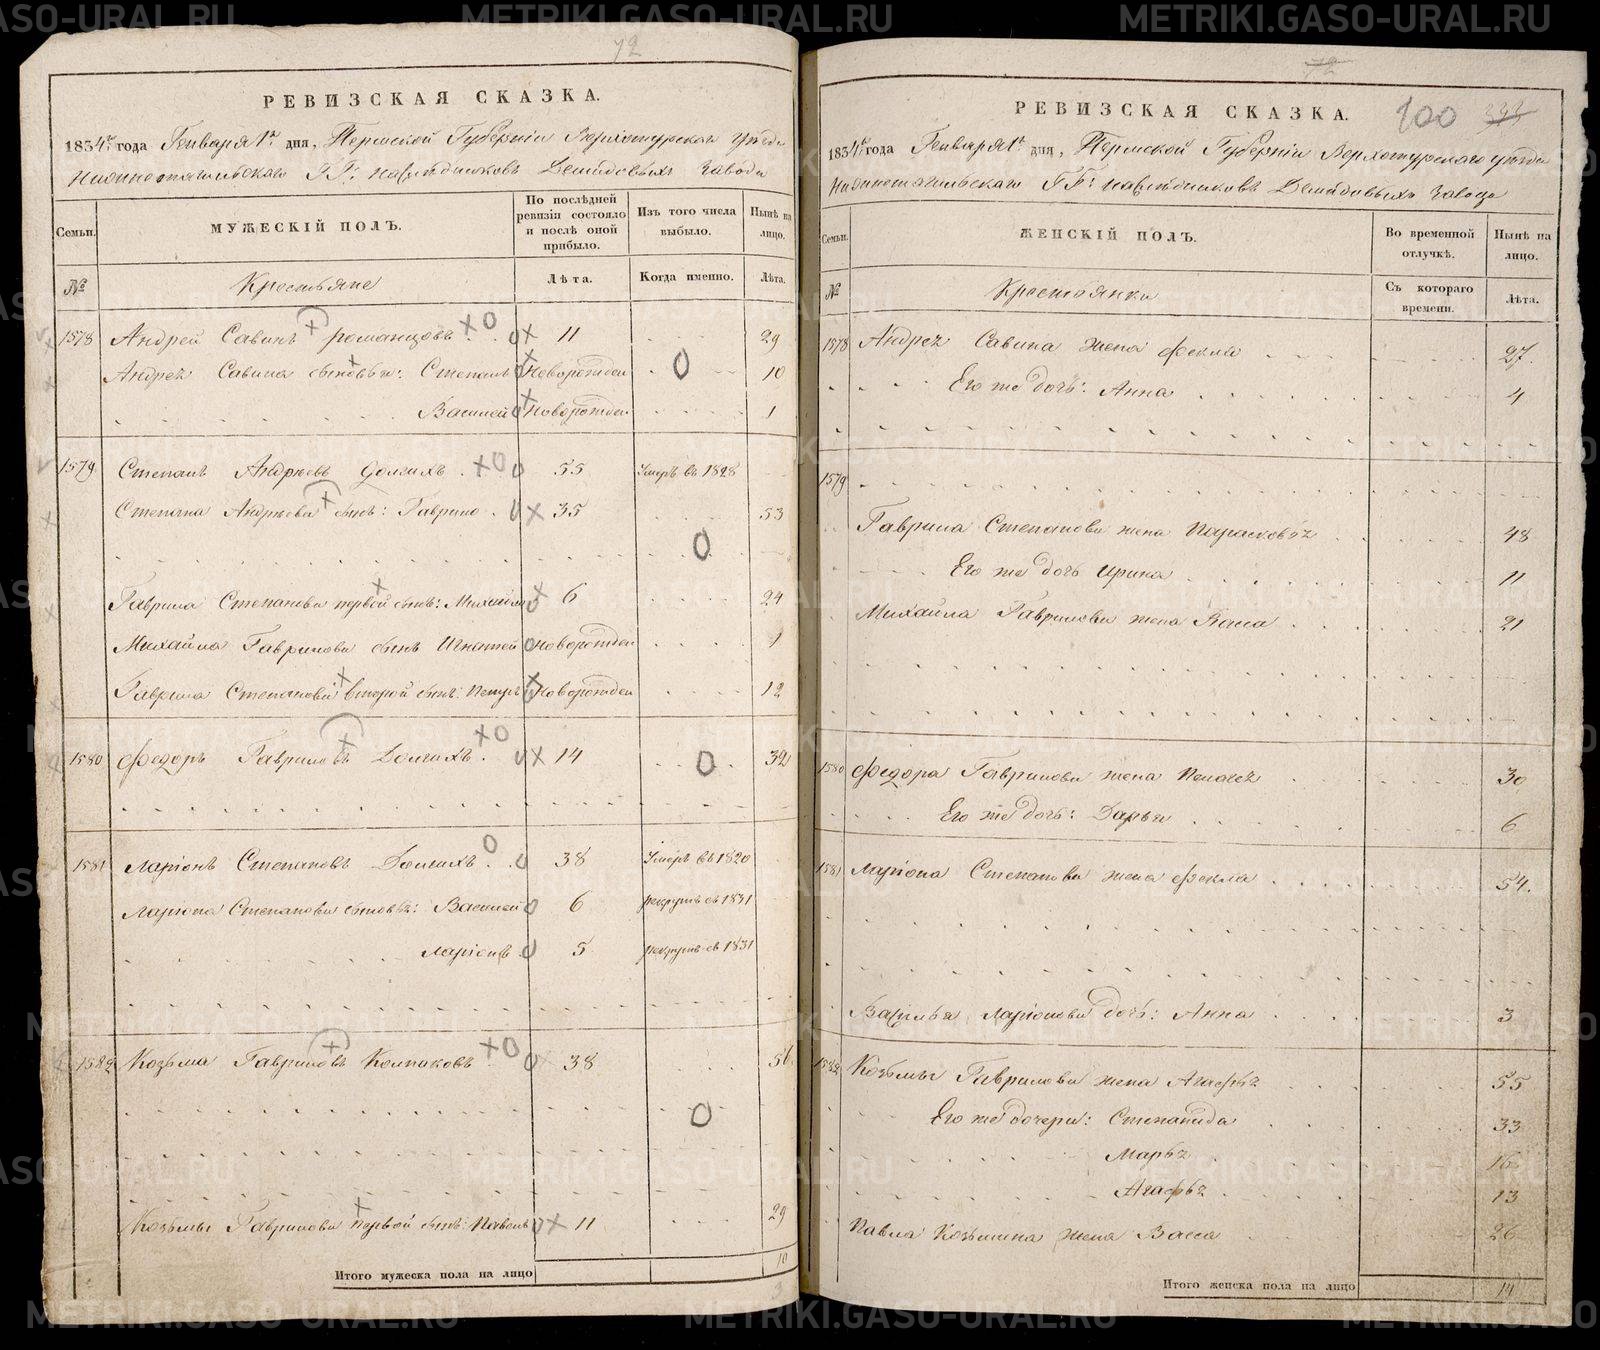 72
РЕВИЗСКАЯ СКАЗКА.
1834го года Генваря 1го дня, Пермской Губернiи Верхотурскаго уѣзда
Нижнетагильскаго ГГ: наслѣдниковъ Демидовыхъ завода
Семьи.
МУЖЕСКIЙ ПОЛ.
По послѣдней ревизiи состояло и послѣ оной прибыло.
Изъ того числа выбыло.
Нынѣ на лицо.
№
Крестьяне
Лѣта.
Когда именно.
Лѣта.
1578 Андрей Савинъ Романцовъ 11 29
Андрея Савина сыновья: Степанъ новорожден 10
Василей новорожден 1
1579 Степанъ Андреевъ Долгихъ 55 Умеръ въ 1828
Степана Андреева сынъ: Гаврило 35 53
Гаврила Степанова первой сынъ: Михайло 6 24
Михайла Гаврилова сынъ Игнатей новорожден 1
Гаврила Степанова второй сынъ: Петръ новорожден 12
1580 Федоръ Гавриловъ Долгихъ 14 32
1581 Ларiонъ Степановъ Долгихъ 38 Умеръ въ 1820
Ларiона Степанова сыновья: Василей 6 рекрутъ съ 1831
Ларiонъ 5 рекрутъ съ 1831
1582 Козьма Гавриловъ Колпаковъ 38 56
Козьмы Гаврилова первой сынъ: Павелъ 11 29
Итого мужеска пола на лицо 10
72
РЕВИЗСКАЯ СКАЗКА.
100
1834го года Генваря 1го дня, Пермской Губернiи Верхотурскаго уѣзда
Нижнетагильскаго ГГ: наслѣдниковъ Демидовыхъ завода
Семьи.
ЖЕНСКIЙ ПОЛ.
Во временной отлучкѣ.
Нынѣ на лицо.
№
Крестьянки
Съ котораго времени.
Лѣта.
1578 Андрея Савина жена Фекла 27
Его же дочь: Анна 4
1579
Гаврила Степанова жена Парасковья 48
Его же дочь Ирина 11
Михайла Гаврилова жена 21
1580 Федора Гаврилова жена Пелагея 30
Его же дочь: Дарья 6
1581 Ларiона Степанова жена Фекла 54.
Василья Ларiонова дочь: Анна 3
1582 Козьмы Гаврилова жена Агафья 55
Его же дочери: Степанида 33
Марья 16
Агафья 13
Павла Козьмина жена Васса 26
Итого женска пола на лицо 14
METRIKI.GASO-URAL.RU